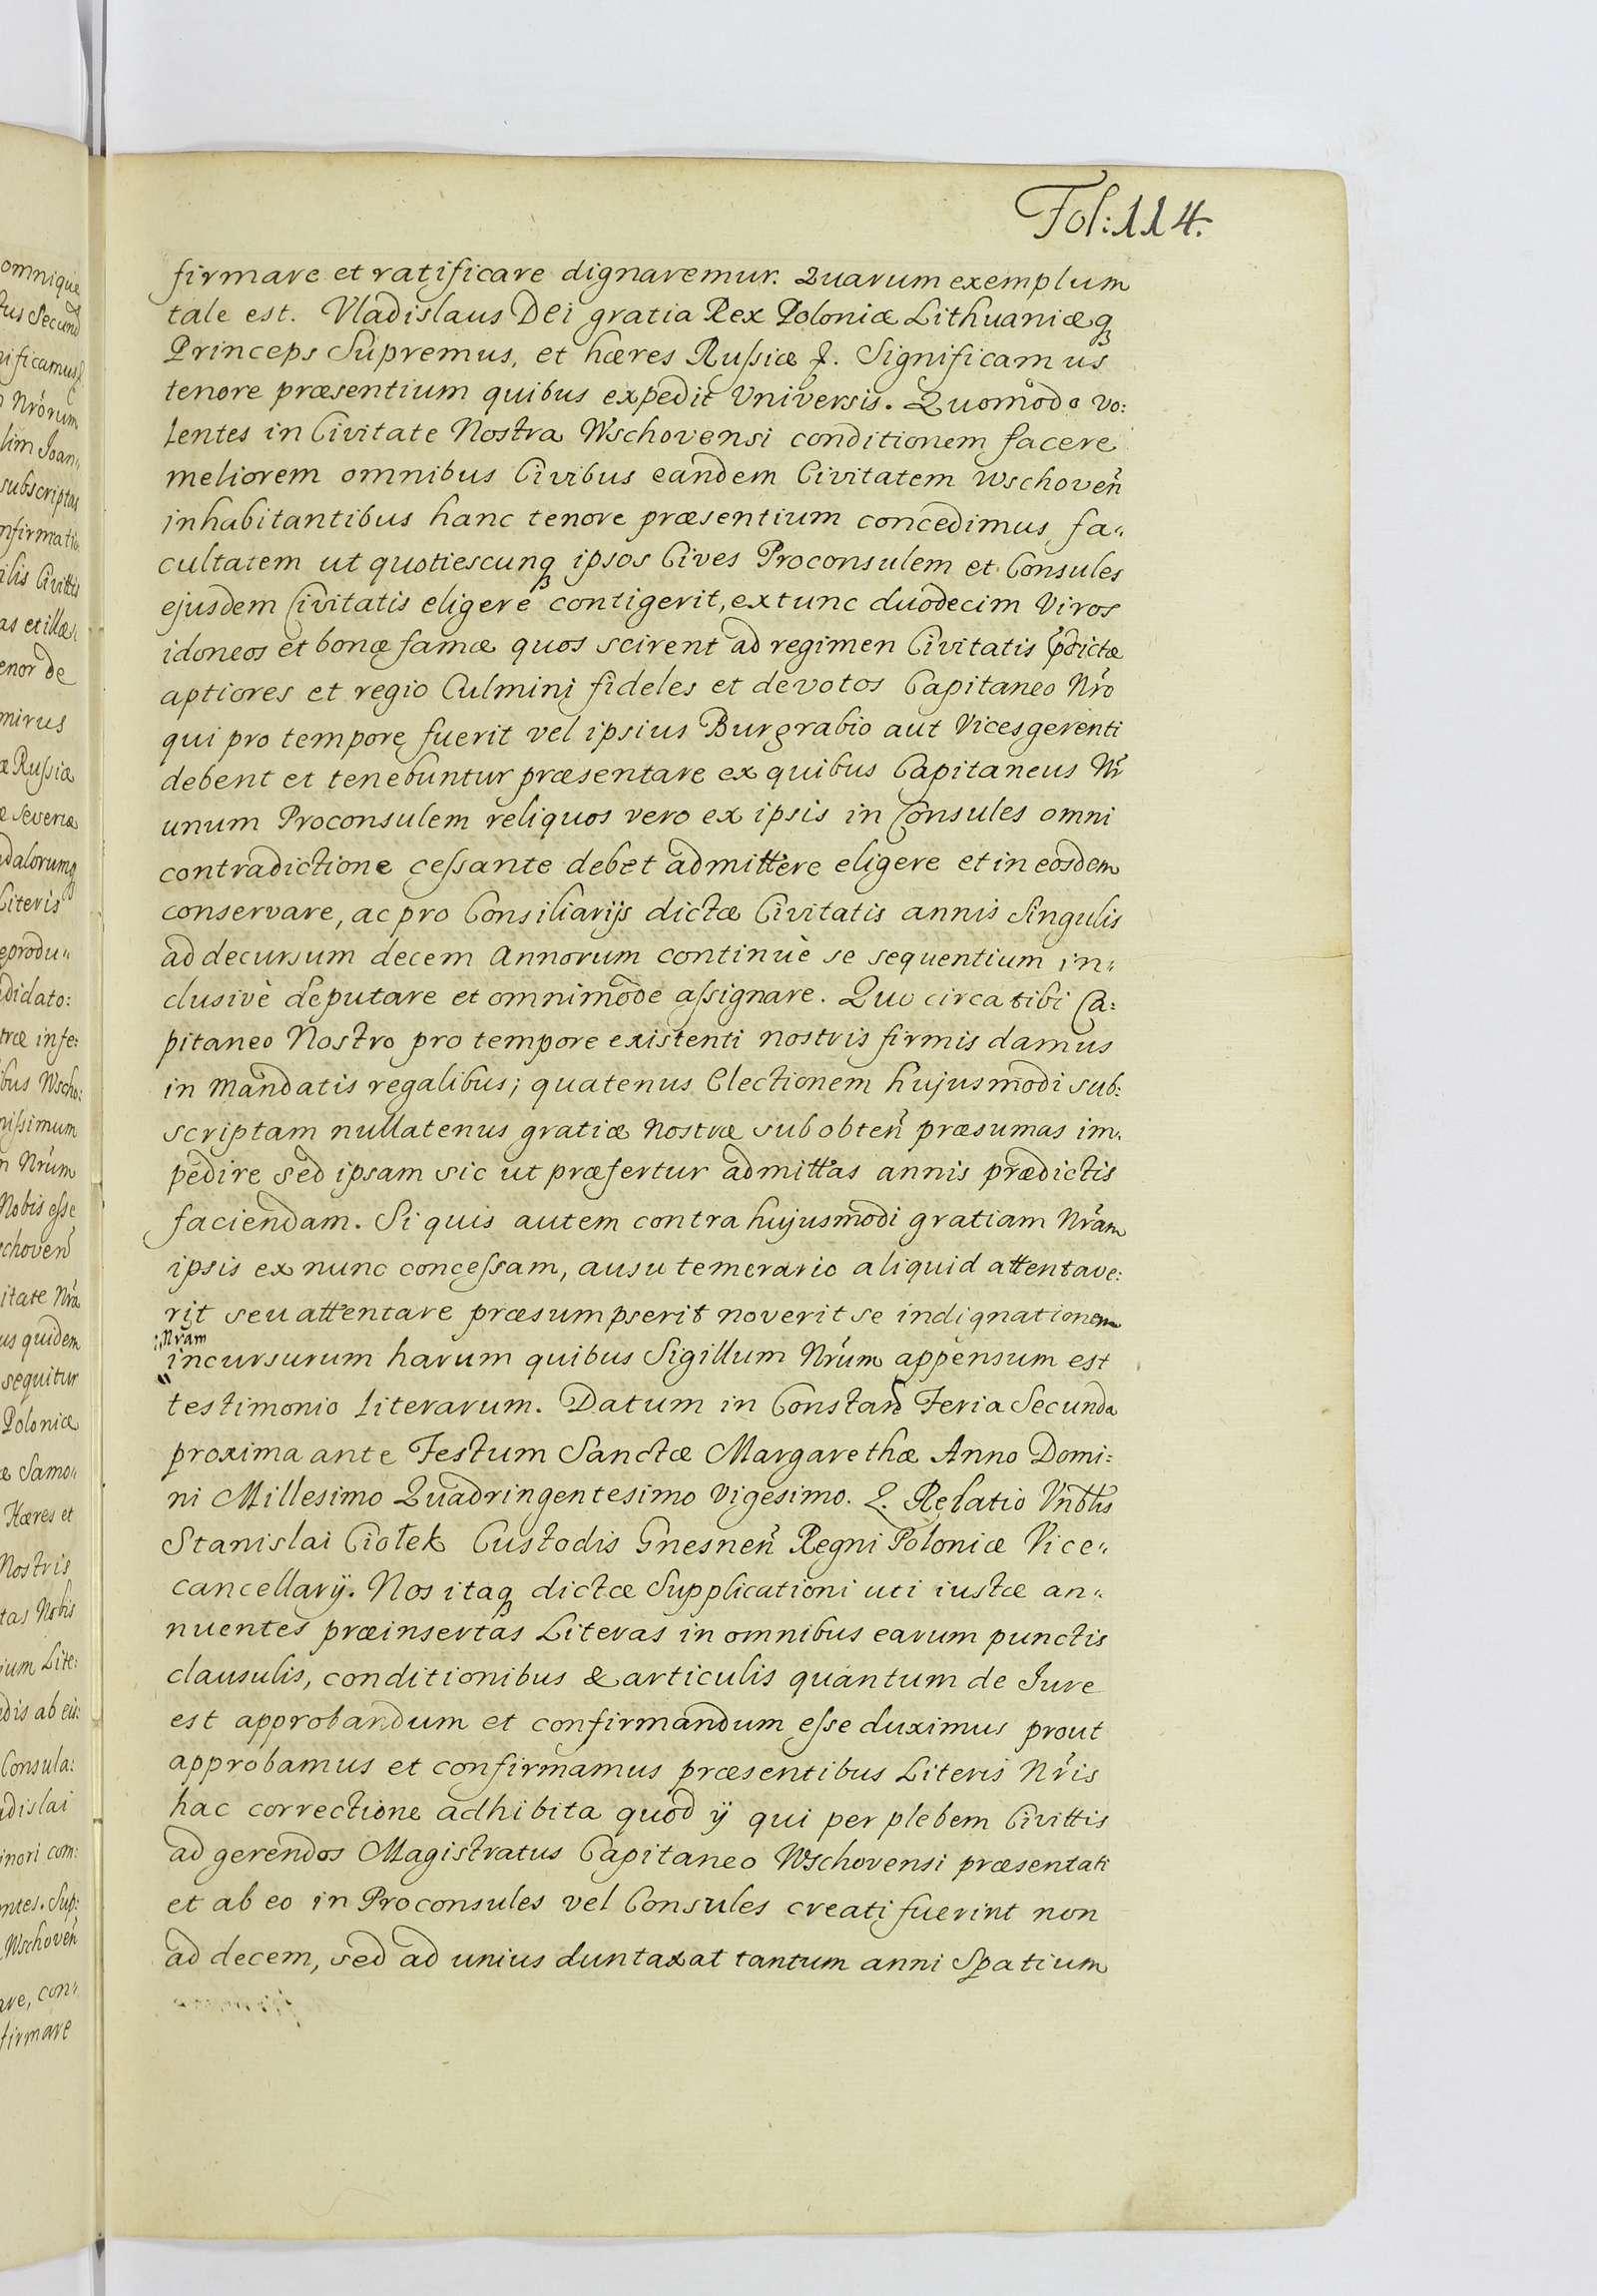 Fol: 114.
firmare et ratificare dignaremur. Quarum exemplum
tale est. Vladislaus Dei gratia Rex Poloniæ Lithuaniæq
Princeps Supremus, et hæres Russiæ &. Significamus
tenore præsentium quibus expedit Universis. Quomodo vo:
lentes in Civitate Nostra Wschovensi conditionem facere
meliorem omnibus Civibus eandem Civitatem Wschoveñ
inhabitantibus hanc tenore præsentium concedimus fa„
cultatem ut quotiescunq ipsos Cives Proconsulem et Consules
ejusdem Civitatis eligere contigerit, extunc duodecim Viros
idoneos et bonæ famæ quos scirent ad regimen Civitatis p̃dictæ
aptiores et regio Culmini fideles et devotos Capitaneo Nr̃o
qui pro tempore fuerit vel ipsius Burgrabio aut Vicesgerenti
debent et tenebuntur præsentare ex quibus Capitaneus Nr̃
unum Proconsulem reliquos vero ex ipsis in Consules omni
contradictione cessante debet admittere eligere et in eosdem
conservare, ac pro Consiliarijs dictæ Civitatis annis Singulis
ad decursum decem Annorum continuè se sequentium in„
clusivè deputare et omnimode assignare. Quo circa tibi Ca:
pitaneo Nostro pro tempore existenti nostris firmis damus
in mandatis regalibus; quatenus Electionem hujusmodi sub:
scriptam nullatenus gratiæ Nostræ sub obteñ præsumas im„
pedire sed ipsam sic ut præfertur admittas annis prædictis
faciendam. Si quis autem contra hujusmodi gratiam Nr̃am
ipsis ex nunc concessam, ausu temerario aliquid attentave:
rit seu attentare præsumpserit noverit se indignationem
Nr̃am
incursurum harum quibus Sigillum Nr̃um appensum est
testimonio literarum. Datum in Constan̄ Feria Secunda
proxima ante Festum Sanctæ Margarethæ Anno Domi:
ni Millesimo Quadringentesimo Vigesimo. &. Relatio Vnb̃lis
Stanislai Ciołek Custodis Gnesneñ Regni Poloniæ Vice„
cancellarij. Nos itaq dictæ Supplicationi uti iustæ an„
nuentes præinsertas Literas in omnibus earum punctis
clausulis, conditionibus & articulis quantum de Iure
est approbandum et confirmandum esse duximus prout
approbamus et confirmamus præsentibus Literis Nr̃is
hac correctione adhibita quod ij qui per plebem Civittis
ad gerendos Magistratus Capitaneo Wschovensi præsentati
et ab eo in Proconsules vel Consules creati fuerint non
ad decem, sed ad unius duntaxat tantum anni Spatium